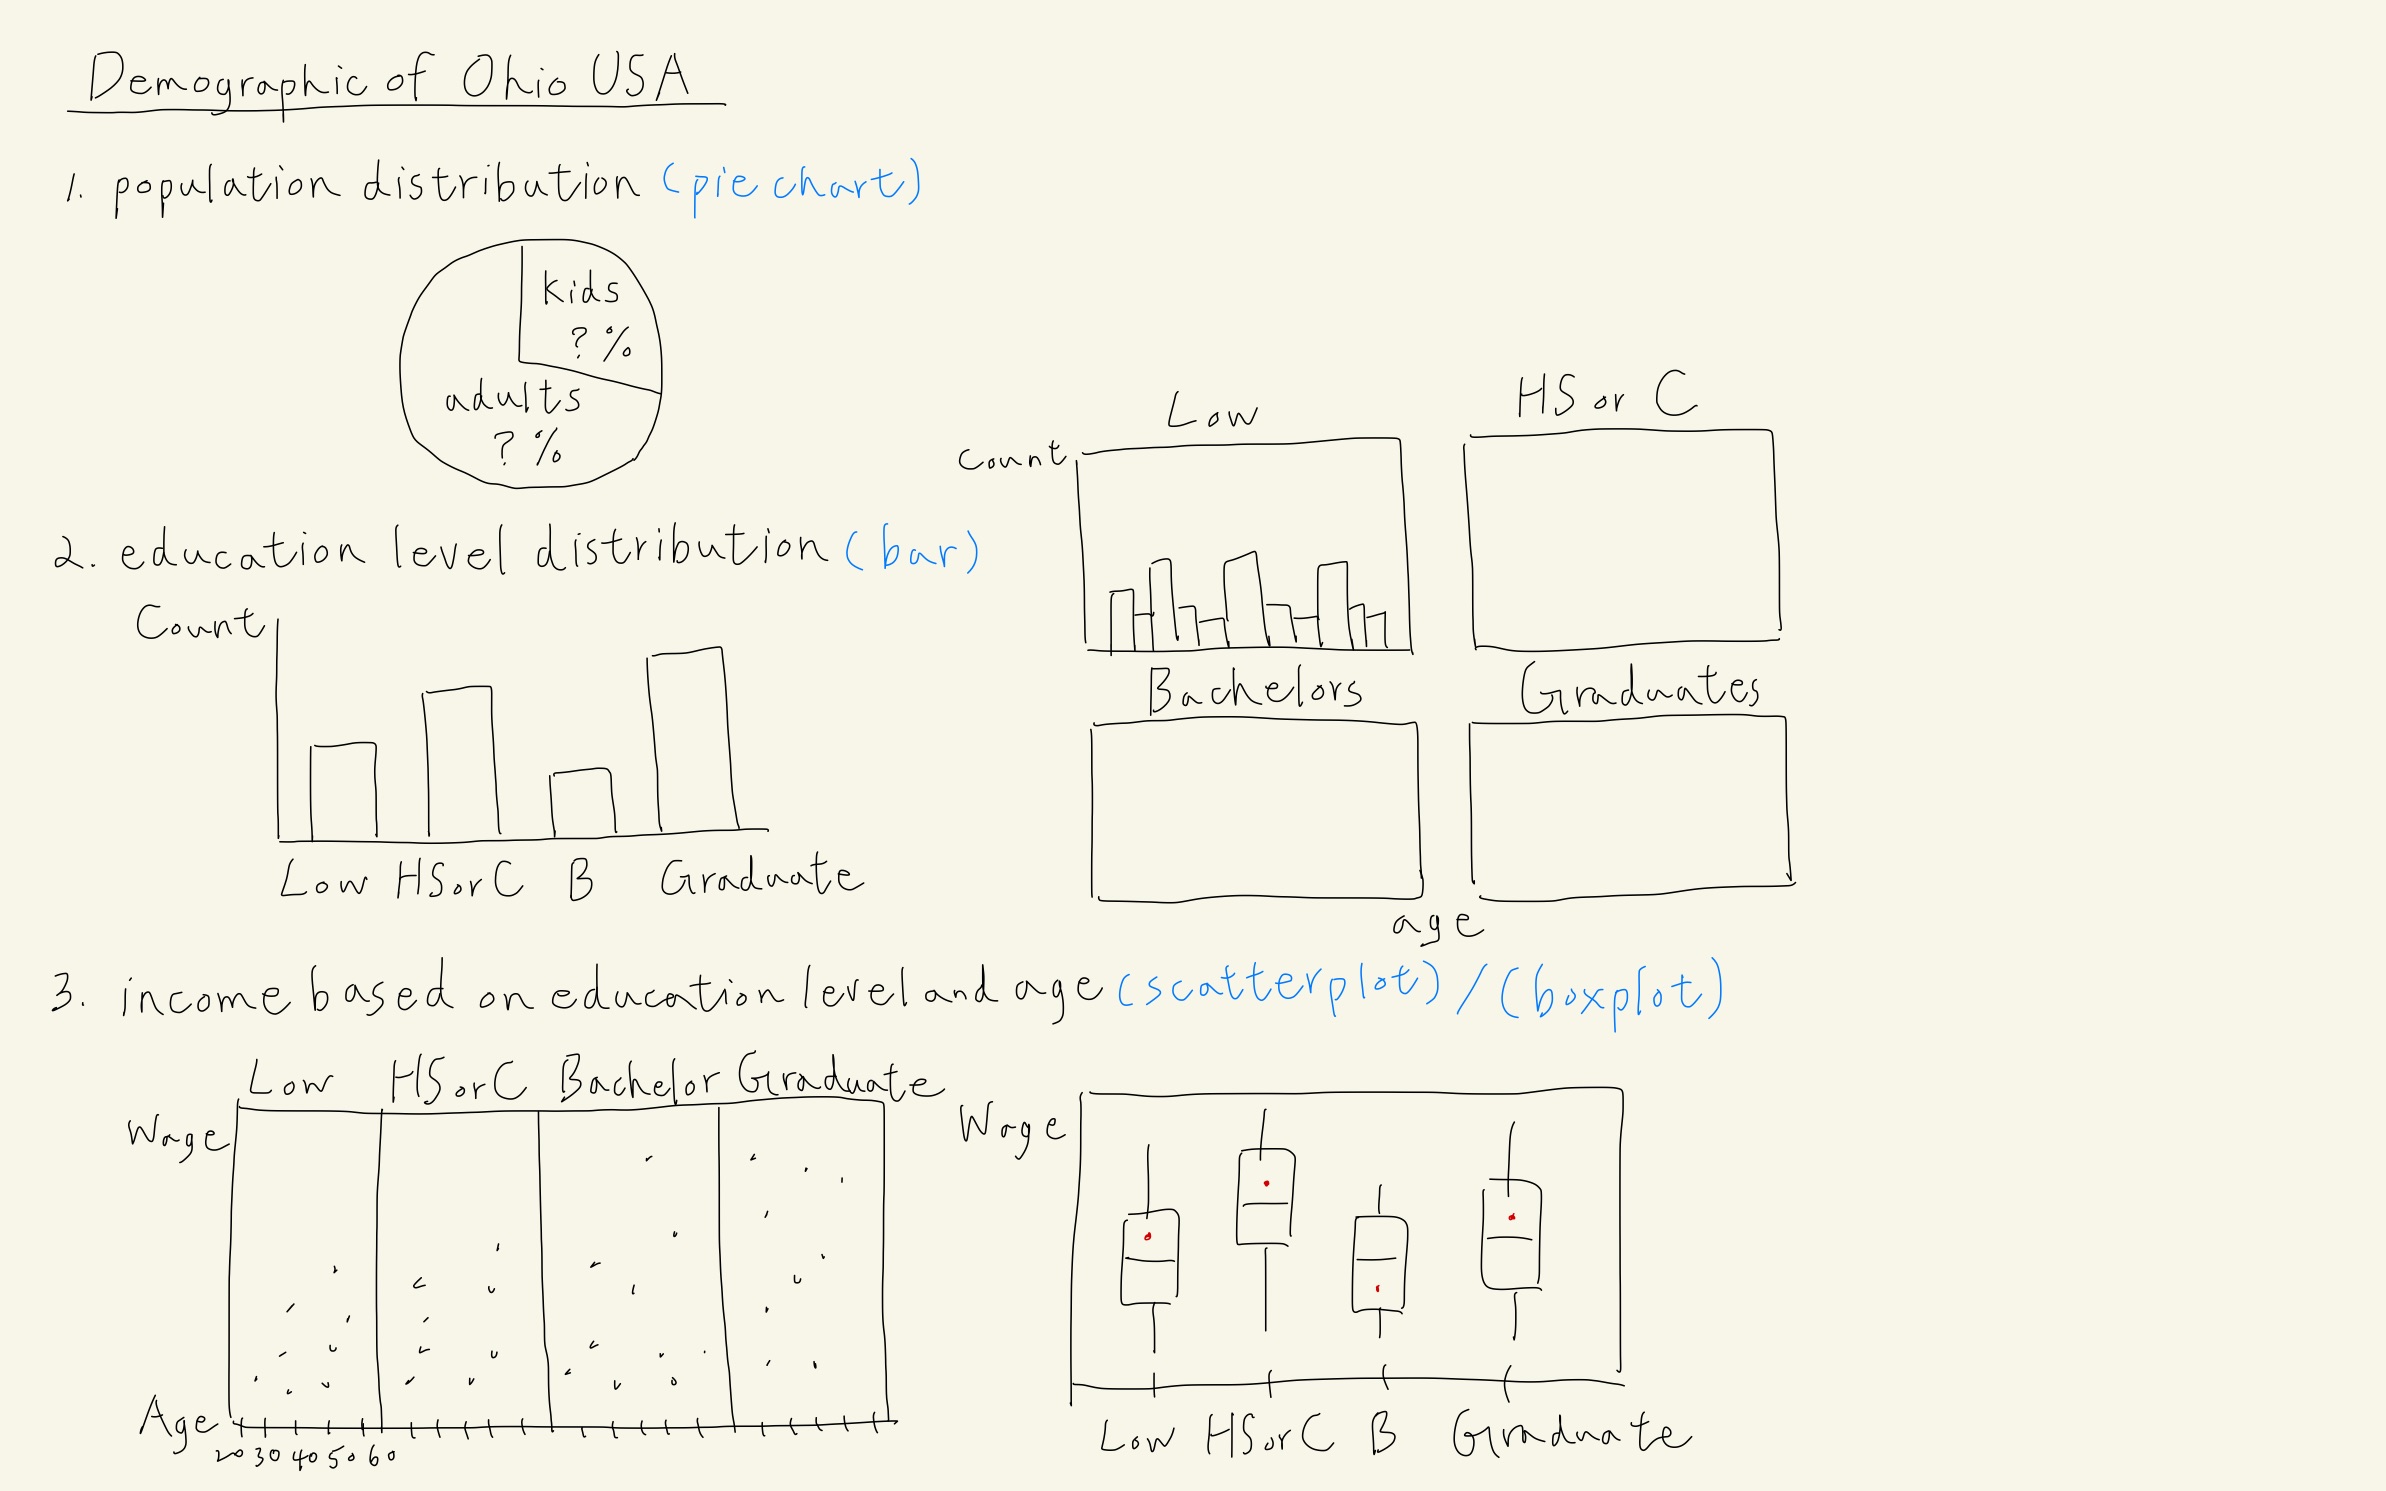 Demographic of Ohio USA
1. population distribution (pie chart)
kids
? %
adults
? %
2. education level distribution (bar)
Count
Low HSorC B Graduate
Low
HS or C
Count
Bachelors
Graduates
age
3. income based on education level and age (scatterplot) / (boxplot)
Low HSorC Bachelor Graduate
Wage
Age
20 30 40 50 60
Wage
Low HSorC B Graduate